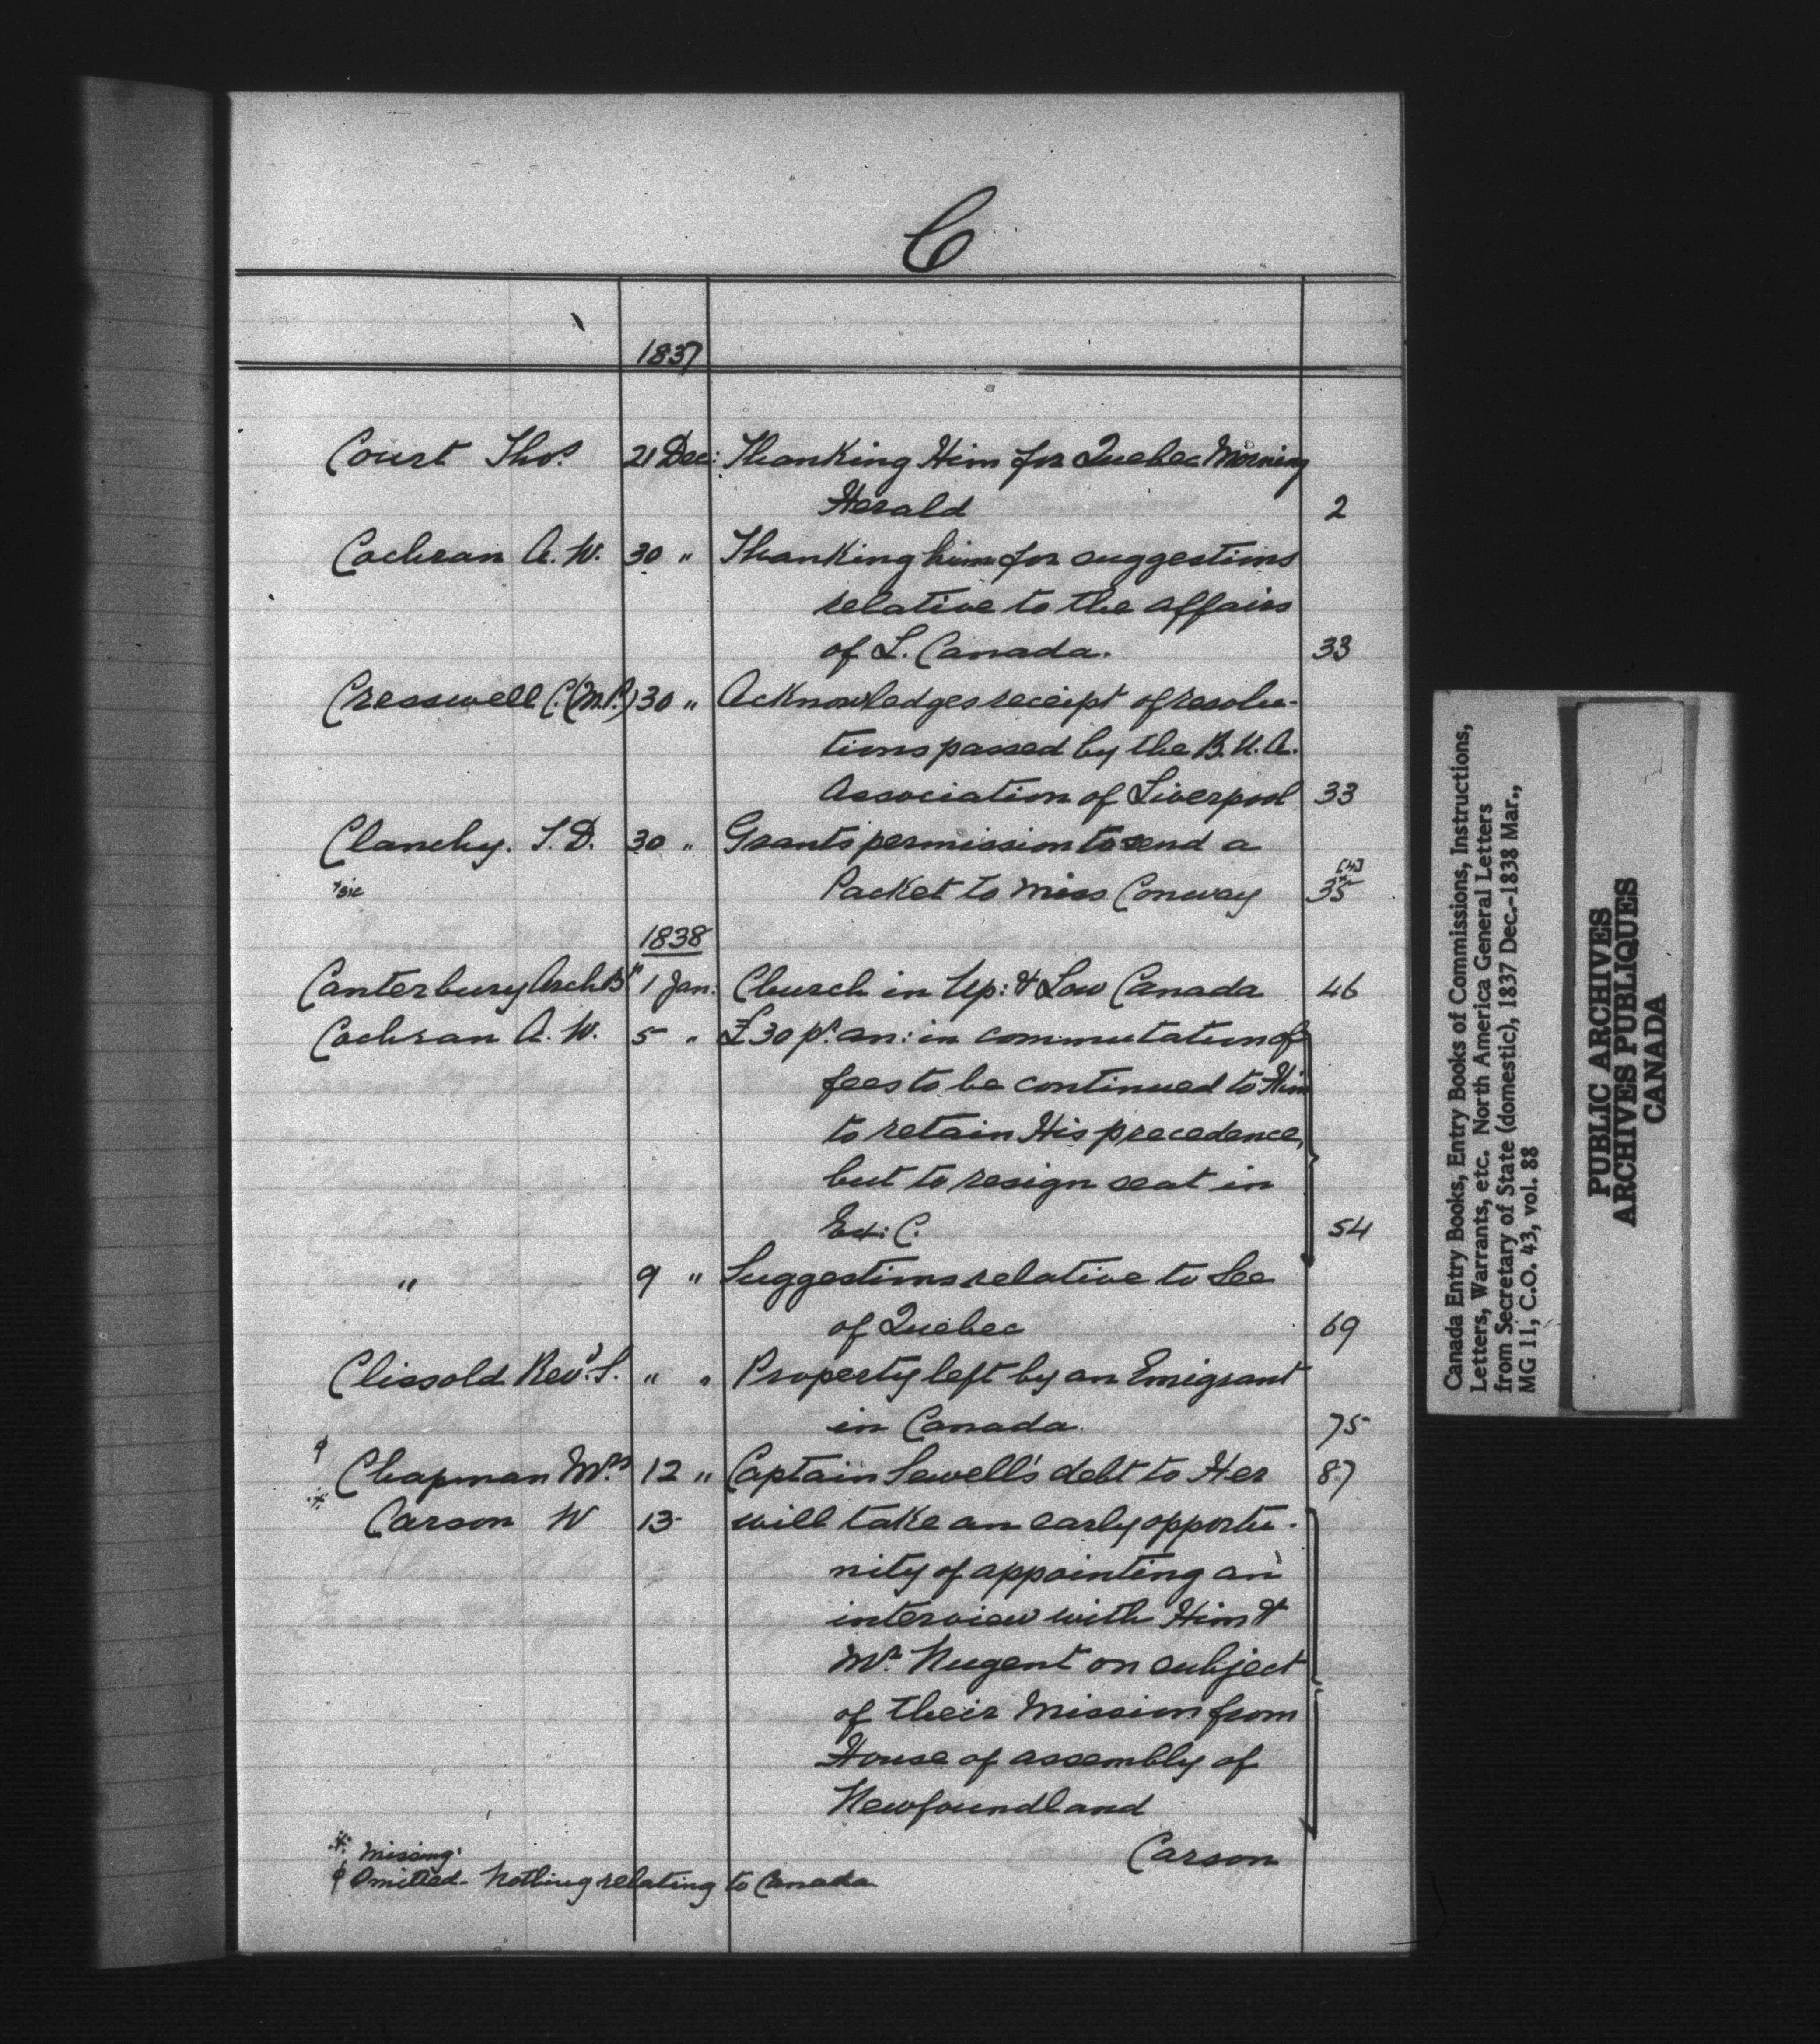 C
1837
Court Thos. 21 Dec: Thanking Him for Quebec Morning
Herald 2
Cochran A. W. 30 " Thanking him for suggestions
relative to the affairs
of L. Canada. 33
Cresswell C. (M.P.) 30 " Acknowledges receipt of resolu-
tions passed by the B. N. A.
Association of Liverpool 33
Clanchy. T. D. 30 " Grants permission to send a
*sic Packet to Miss Conway 35
1838
Canterbury Archbp 1 Jan. Church in Up: & Low Canada 46
Cochran A. W. 5 " £30 pr. an: in commutation of
fees to be continued to Him
to retain His precedence,
but to resign seat in
Ex: C. 54
" 9 " Suggestions relative to See
of Quebec 69
Clissold Revd. S. " " Property left by an Emigrant
in Canada. 75
φ Chapman Mrs 12 " Captain Sewell's debt to Her 87
※ Carson W 13 will take an early opportu-
nity of appointing an
interview with Him &
Mr. Nugent on subject
of their Mission from
House of assembly of
Newfoundland
Carson
※ Missing.
φ Omitted - Nothing relating to Canada
Canada Entry Books, Entry Books of Commissions, Instructions,
Letters, Warrants, etc. North America General Letters
from Secretary of State (domestic), 1837 Dec.-1838 Mar.,
MG 11, C.O. 43, vol. 88
PUBLIC ARCHIVES
ARCHIVES PUBLIQUES
CANADA